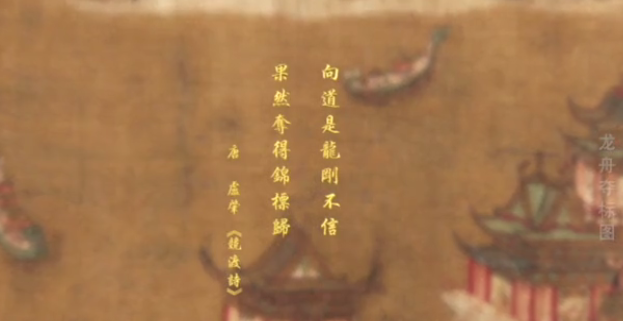 向道是龍剛不信
果然奪得錦標歸
唐 盧肇《競渡詩》
龙舟夺标图